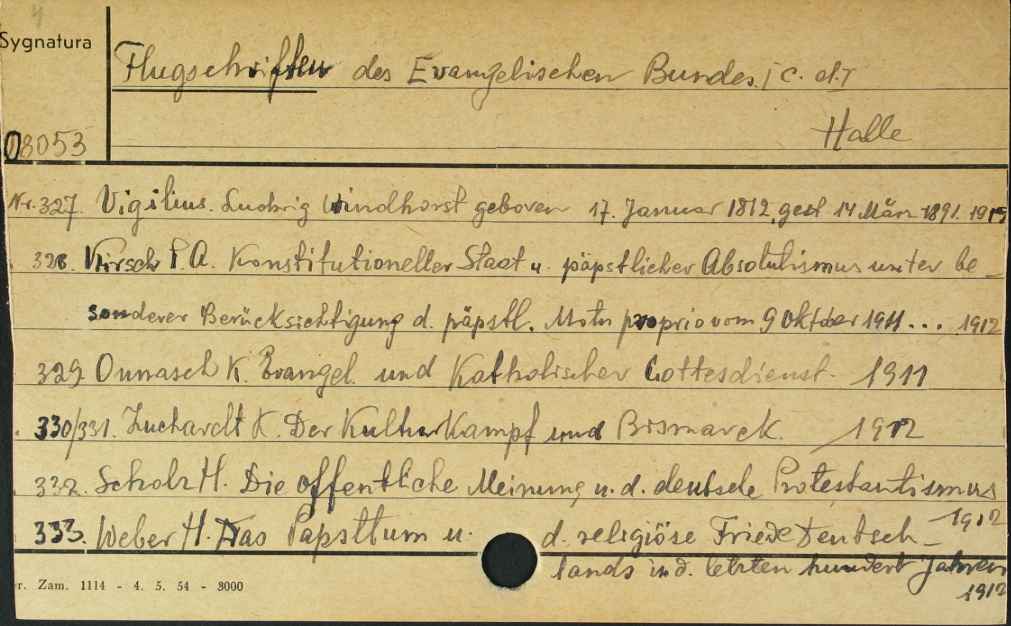 4
Sygnatura
Flugschriften des Evangelischen Bundes. / c. d. /
Halle
08053
Nr. 327. Vigilius. Ludwig Windhorst geboren 17. Januar 1812, gest. 14 März 1891. 1912
328. Kirsch P. A. Konstitutioneller Staat u. päpstlicher Absolutismus unter be-
sonderer Berücksichtigung d. päpstl. Motu proprio vom 9 Oktober 1911 ... 1912
329. Onnasch K. Evangel. und Katholischer Gottesdienst. 1911
330/331. Luchardt K. Der Kulturkampf und Bismarck. 1912
332. Scholz H. Die öffentliche Meinung u. d. deutsche Protestantismus
1912
333. Weber H. Das Papsttum u. d. religiöse Friede Deutsch-
lands in d. letzten hundert Jahren
1912
r. Zam. 1114 - 4. 5. 54 - 3000